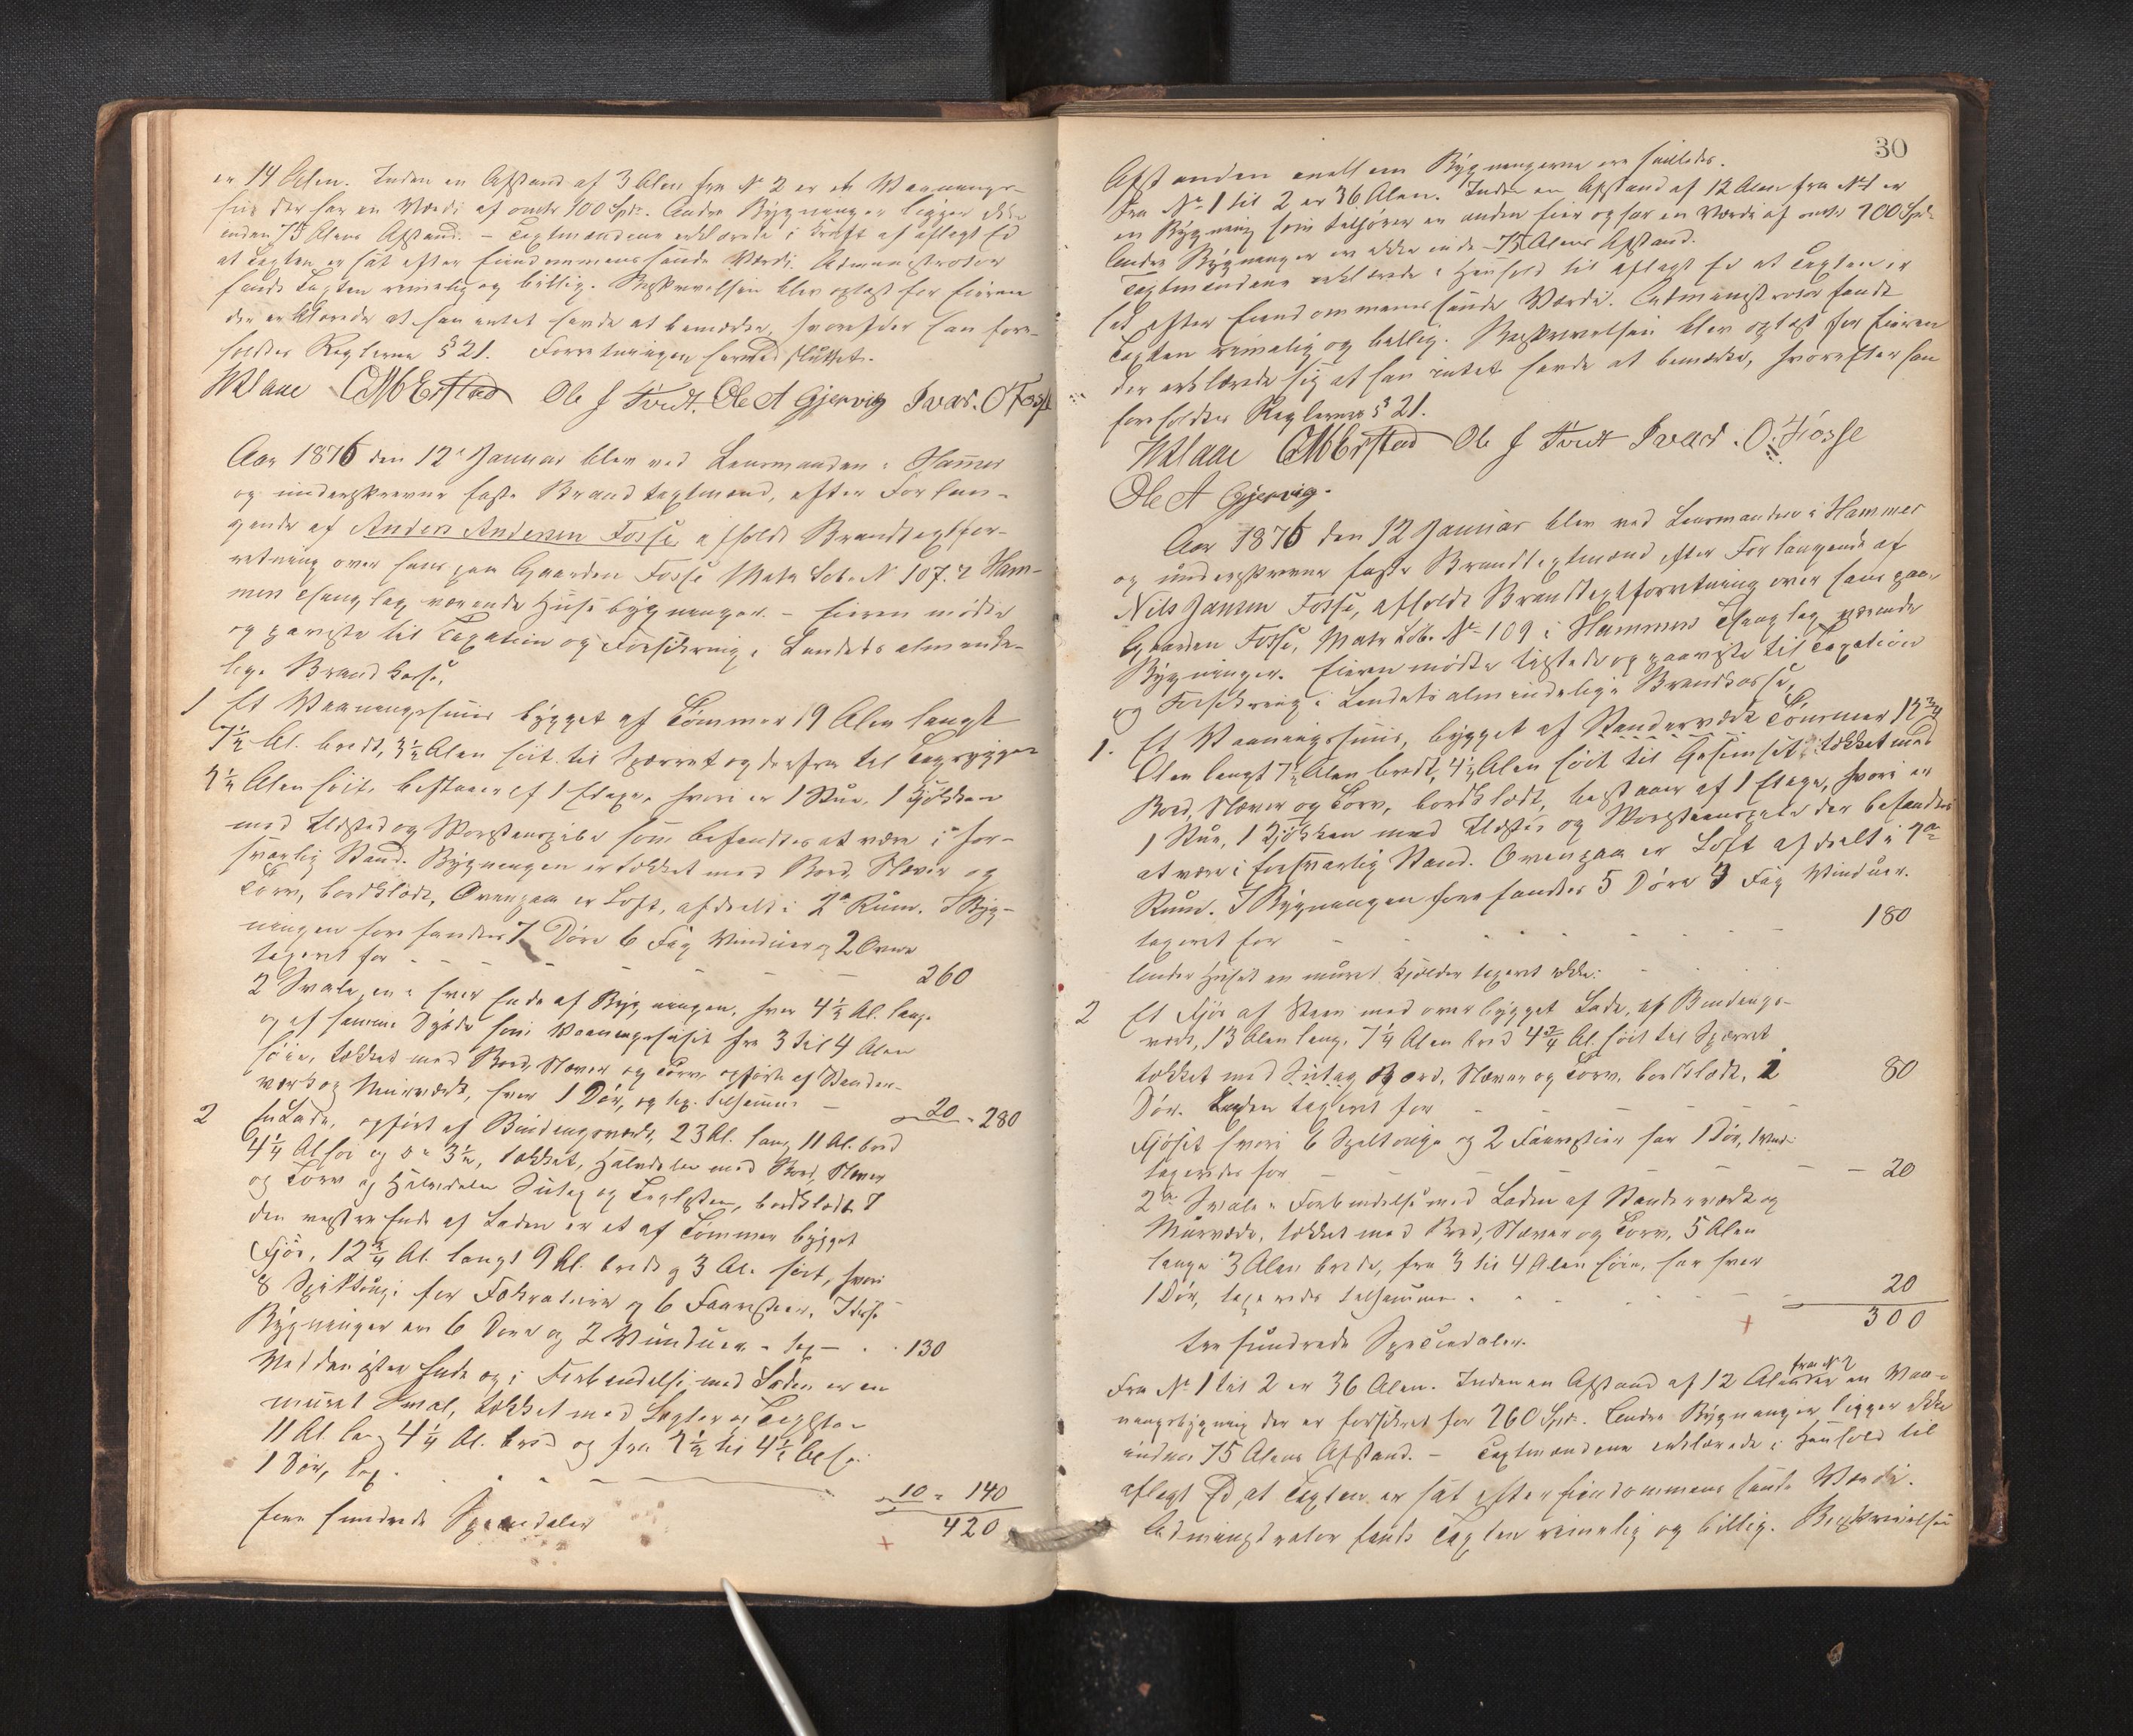 er 14 Alen. Inden en Afstand af 3 Alen fra No 2 er et Vaanings-
huus der har en Værdi af omtr 100 Spdr. Andre Bygninger ligger ikke
inden 75 Alens Afstand. - Taxtmændene erklærede i Kraft af aflagt Ed
at Taxten er sat efter Eiendommens sande Værdi. Administrator
fandt Taxten rimelig og billig. Beskrivelsen blev oplæst for Eieren
der erklærede at han intet havde at bemærke, hvorefter han fore-
holdtes Reglerne § 21. Forretningen hermed sluttet.
Ole J Tvedt. Ole A Gjervig Ivar. O Fosse
Aar 1876 den 12te Januar blev ved Lensmanden i Hammer
og underskrevne faste Brandtaxtmænd, efter Forlan-
gende af Anders Andersen Fosse, afholdt Brandtaxtfor-
retning over hans paa Gaarden Fosse Matr Løb. No 107. i Ham-
mer Thinglag værende Huusbygninger. - Eieren mødte
og paaviste til Taxation og Forsikring i Landets alminde-
lige Brandkasse,
1 Et Vaaningshuus bygget af Tømmer 19 Alen langt
7½ Al. bredt, 3½ Alen høit til Sparret og derfra til Tagryggen
Alen høit, bestaaer af 1 Etage, hvori er 1 Stue, 1 Kjøkken
med Ildsted og Skorsteenspibe som befandtes at være i for-
svarlig Stand. Bygningen er tækket med Bord, Næver og
Torv, bordklædt, Ovenpaa er Loft, afdeelt i 2de Rum. I Byg-
ningen forefandtes 7 Døre 6 Fag Vinduer og 2 Ovne
taxeret for - - - 260
2 Svale, en i hver Ende af Bygningen, hver 4½ Al. lange
og af samme Dybde som Vaaningshuset fra 3 til 4 Alen
høie, tækket med Bord, Næver og Torv opført af Stander-
værk og Muurværk, hver 1 Dør, og tax. tilsammen - 20 - 280
2 En Lade, opført af Bindingsværk, 23 Al. lang 11 Al. bred
4¼ Al høi og 3½, tækket, Halvdelen med Bord, Næver
og Torv og Halvdelen Sutag og Taglsten, bordklædt. I
den vestre Ende af Laden er et af Tømmer bygget
Fjøs, 12¾ Al. langt 9 Al. bredt og 3 Al. høit, hvori
8 Spiltouge for og 6 Faarestier. I disse
Bygninger er 6 Døre og 2 Vinduer - tax - 130
Ved den østre Ende og i Forbindelse med Laden er en
muret Sval, tækket med Lægter og Taglsten
11 Al. lang 4¼ Al. bred og fra til 4½ Al høi
1 Dør, tax. - - - 10 = 140
420
fire hundrede Speciedaler
30
Afstanden mellem Bygningerne ere saaledes.
Fra No 1 til 2 er 36 Alen. Inden en Afstand af 12 Alen fra No 1 er
en Bygning som tilhører en anden Eier og har en Værdi af omtr 100 Spd.
Andre Bygninger er ikke inden 75 Alens Afstand.
Taxtmændene erklærede i Henhold til aflagt Ed at Taxten er
sat efter Eiendommens sande Værdi. Administrator fandt
Taxten rimelig og billig. Beskrivelsen blev oplæst for Eieren
der erklærede sig at han intet havde at bemærke, hvorefter han
foreholdtes Reglernes § 21.
Ole J Tvedt Ivar. O. Fosse
Ole A Gjervig.
Aar 1876 den 12 Januar blev ved Lensmanden i Hammer
og underskrevne faste Brandtaxtmænd efter Forlangende af
Nils Jansen Fosse, afholdt Brandtaxtforretning over hans paa
Gaarden Fosse, Matr Løb. No 109 i Hammers Thinglag værende
Bygninger. Eieren mødte tilstede og paaviste til Taxation
og Forsikring i Landets almindelige Brandkasse,
1. Et Vaaningshuus, bygget af Standerværk Tømmer 12¾
Alen langt 7½ Alen bredt, 4½ Alen høit til Gesimset, tækket med
Bord, Næver og Torv, bordklædt, bestaaer af 1 Etage, hvori er
1 Stue, 1 Kjøkken med Ildsted og Skorsteenspibe der befandtes
at være i forsvarlig Stand. Ovenpaa er Loft afdeelt i 2de
Rum. I Bygningen forefandtes 5 Døre Fag Vinduer.
taxeret for - - - 180
Under Huset en muret Kjælder taxeret ikke.
2 Et Fjøs af Steen med overbygget Lade, af Bindings-
værk, 13 Alen lang, 7¼ Alen bred 4¾ Al. høit til Sparret
tækket med Sutag Bord, Næver og Torv, bordklædt, 80
Dør. Laden taxeret for -
Fjøset hvori 6 Spiltouge og 2 Faarestier har 1 Dør, 1 Vindu
taxeredes for - - - 20
2de Svale i Forbindelse med Laden af Standerværk og
Muurværk, tækket med Bord, Næver og Torv, 5 Alen
lange 3 Alen brede, fra 3 til 4 Alen høie, har hver
1 Dør, taxeredes tilsammen - - 20
300
tre hundrede Speciedaler.
Fra No 1 til 2 er 36 Alen. Inden en Afstand af 12 Alen fra No 2 er en Vaa-
ningsbygning der er forsikret for 260 Spdr. Andre Bygninger ligger ikke
inden 75 Alens Afstand. - Taxtmændene erklærede i Henhold til
aflagt Ed, at Taxten er sat efter Eiendommens sande Værdi.
Administrator fandt Taxten rimelig og billig. Beskrivelsen